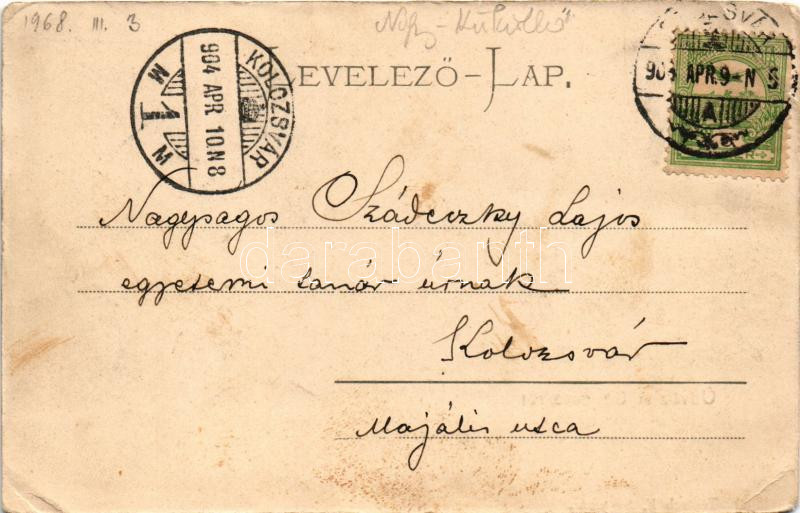 1968. III. 3
Nagy-Küküllő
LEVELEZŐ-LAP.
KOLOZSVÁR
904 APR. 10 N 8
M 1 M
904 APR. 9 - N 5
A
Nagyságos Szádeczky Lajos
egyetemi tanár úrnak
Kolozsvár
Majális utca
darabanth